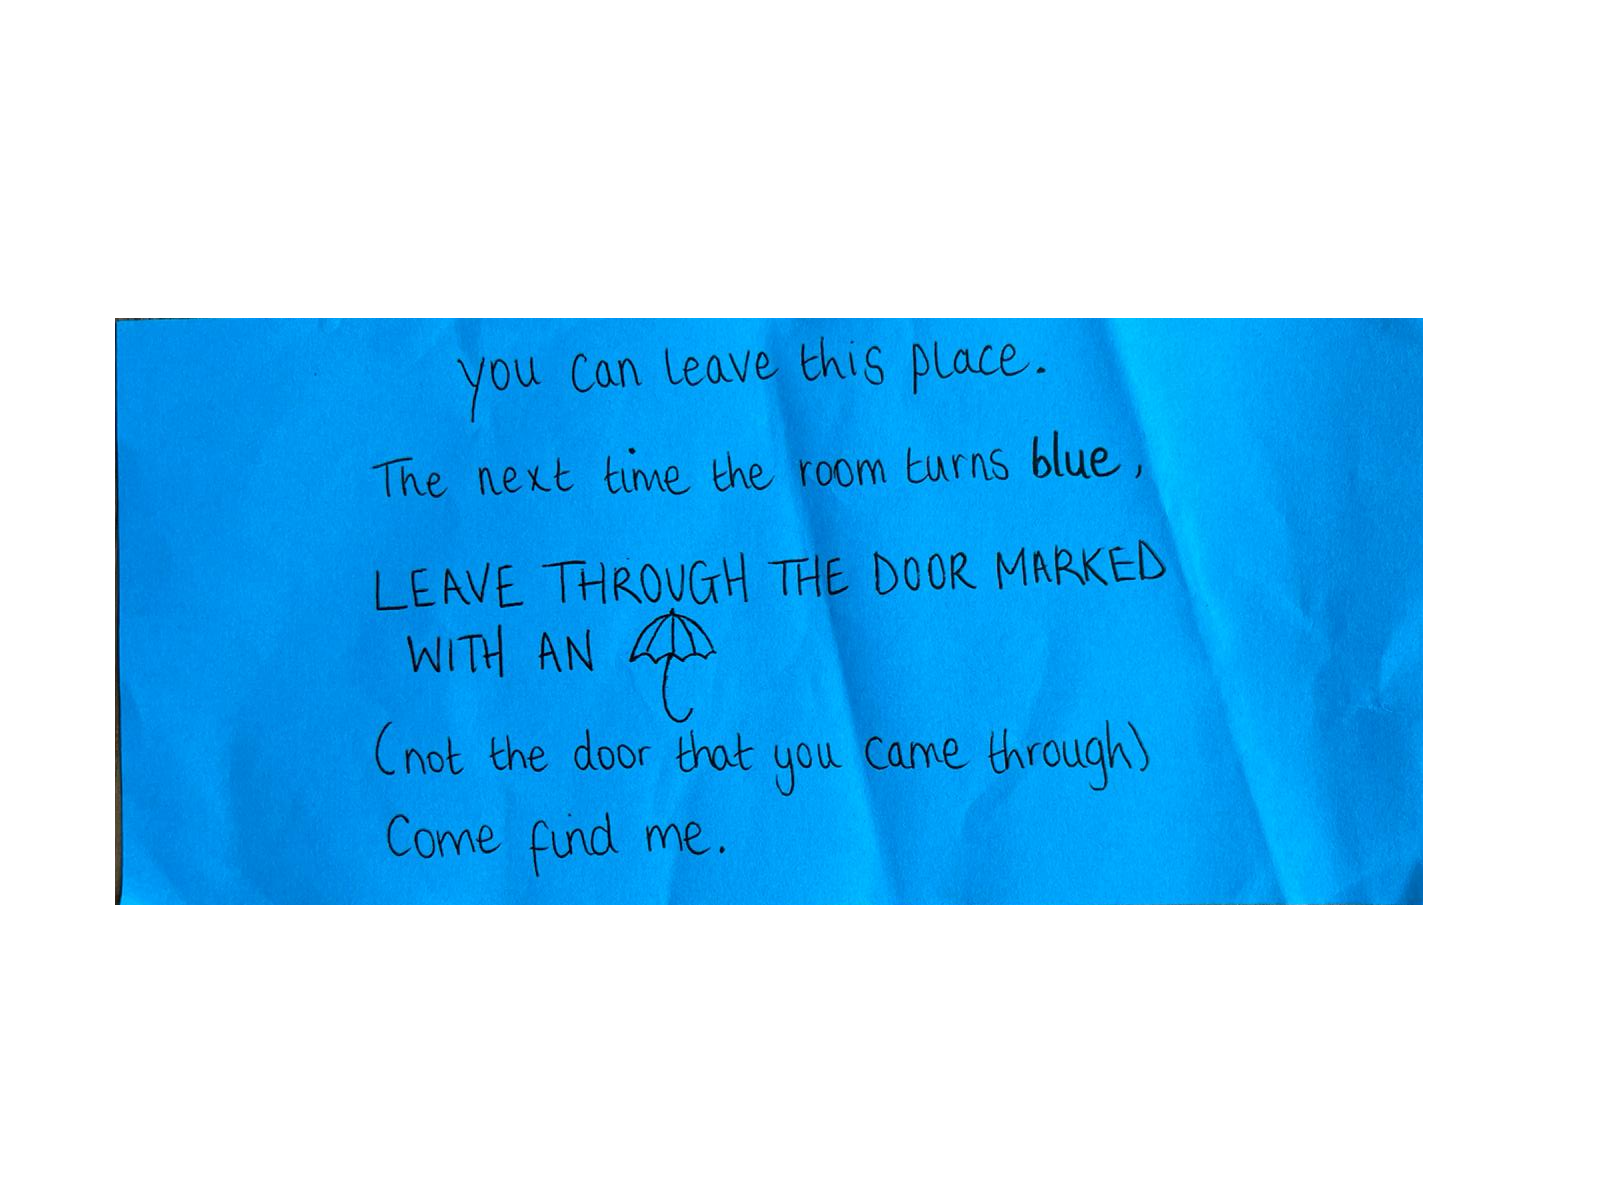 you can leave this place.
The next time the room turns blue,
LEAVE THROUGH THE DOOR MARKED
WITH AN
(not the door that you came through)
Come find me.